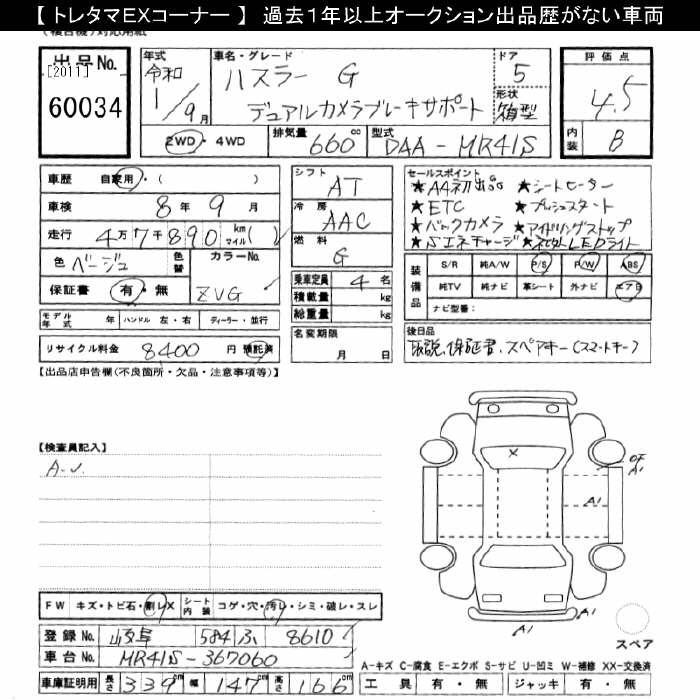 【 トレタマEXコーナー 】 過去1年以上オークション出品歴がない車両
出品No.
[2011]
60034
年式
令和
1/9月
車名・グレード
ハスラー G
デュアルカメラブレーキサポート
ドア
5
形状
箱型
評価点
4.5
内装
B
2WD・4WD
排気量
660cc
型式
DAA-MR41S
車歴 自家用・( )
車検 8年9月
走行 4万7千890 km マイル( )
色 ベージュ
色替
カラーNo.
ZVG
保証書 有・無
モデル年式 年 ハンドル 左・右 ディーラー・並行
リサイクル料金 8400円 預託済
シフト
AT
冷房
AAC
燃料
G
乗車定員 4名
積載量 kg
総重量 kg
名変期限
月 日
セールスポイント
★A4初出品 ★シートヒーター
★ETC ★プッシュスタート
★バックカメラ ★アイドリングストップ
★Sエネチャージ
装備品
S/R 純A/W P/S P/W ABS
純TV 純ナビ 革シート 外ナビ エアB
ナビ型番:
後日品
取説、保証書、スペアキー(スマートキー)
【出品店申告欄(不良箇所・欠品・注意事項等)】
【検査員記入】
X
OF
A1
A1
A1
FW キズ・トビ石・割レX
シート内装 コゲ・穴・汚レ・シミ・破レ・スレ
登録No. 岐阜 584 ふ 8610
車台No. MR41S-367060
車庫証明用 長さ 339cm 幅 147cm 高さ 166cm
スペア
A-キズ C-腐食 E-エクボ S-サビ U-凹ミ W-補修 XX-交換済
工具 有・無 ジャッキ 有・無